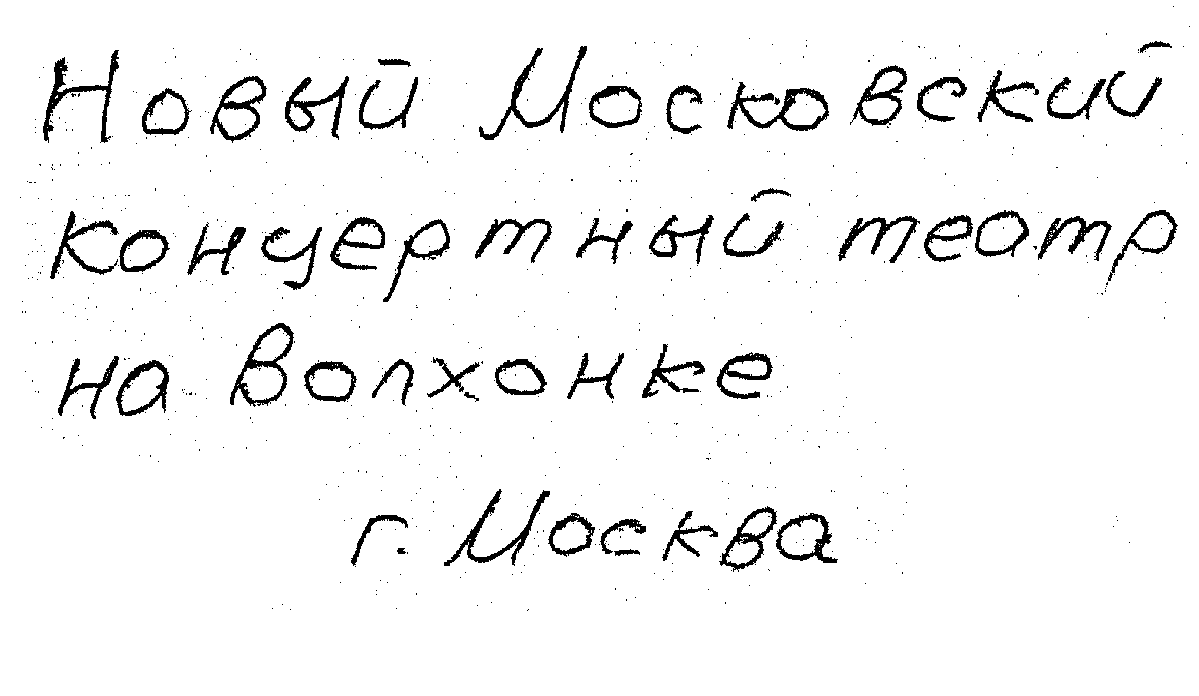 Новый Московский
концертный театр
на Волхонке
г. Москва